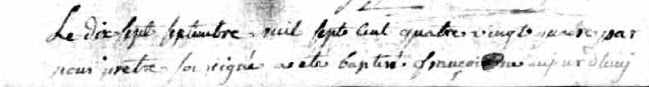 Le dix sept septembre mil sept cent quatre vingt quatre par
nous pretre soussigné a eté baptisé françois né aujourd'huy